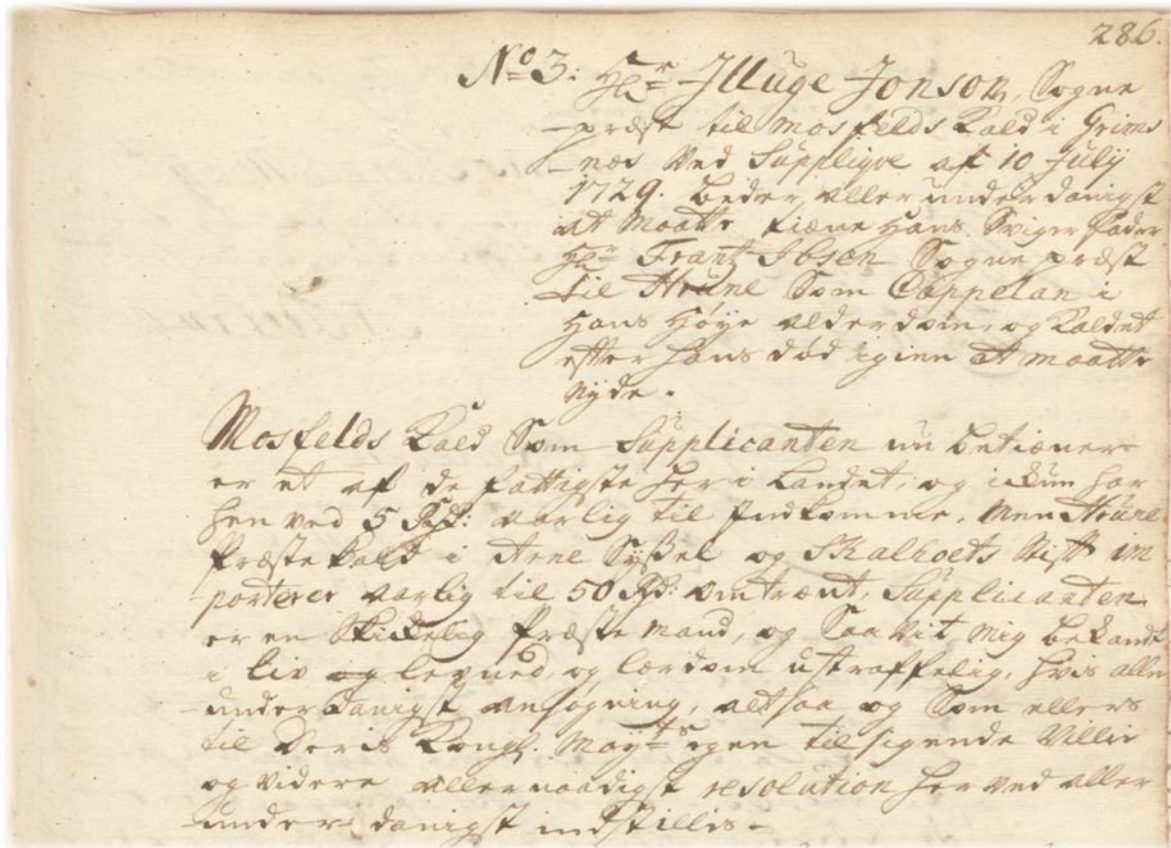 286.
No 3: Hr Illuge Jonson, Sogne
-præst til Mosfelds Kald i Grims
-næs ved Suppliqve af 10 July
1729. beder aller underdanigst
at maatte tiæne hans Sviger fader
Hr Frant Ibsen Sogne præst
til Hrune Som Cappelan i
hans høye alderdom, og Kaldet
efter hans død igien at maatte
nyde.
Mosfelds Kald Som Supplicanten nu betiæner
er et af de fattigste her i Landet, og ickun har
hen ved 5 Rd: aarlig til Indkomme, Men Hrune
Præste Kald i Arne Syßel og Skalhoets Stift im
porterer aarlig til 50 Rd: omtrent, Supplicanten
er en Skickelig Præste mand, og Saa vit mig bekandt
i liv og levned, og lærdom ustraffelig, hvis aller
underdanigst ansøgning, altsaa og Som ellers
til Deris Kongl. Mayts egen tilsigende Villie
og videre allernaadigst resolution her ved aller
underdanigst indstillis-